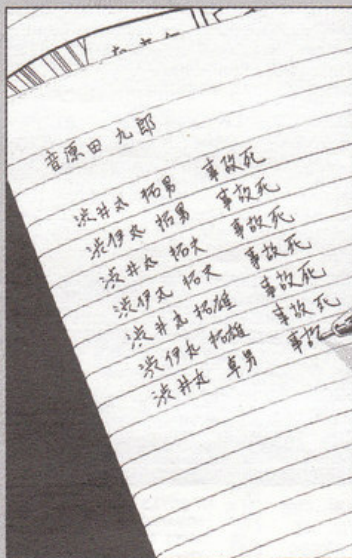 音原田 九郎
渋井丸 拓男 事故死
渋伊丸 拓男 事故死
渋井丸 拓夫 事故死
渋伊丸 拓夫 事故死
渋井丸 拓雄 事故死
渋伊丸 拓雄 事故死
渋井丸 卓男 事故